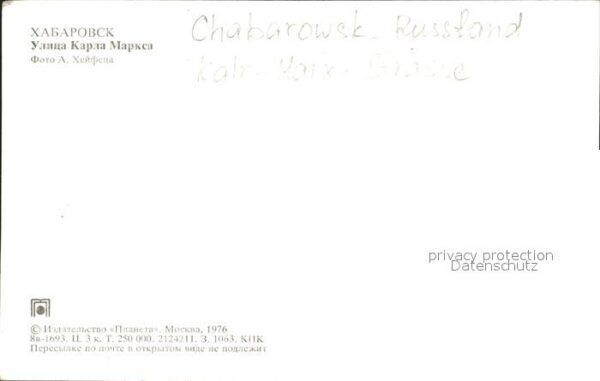 ХАБАРОВСК
Улица Карла Маркса
Фото А. Хейфеца
Chabarowsk - Russland
Karl-Marx-Strasse
privacy protection
Datenschutz
© Издательство «Планета». Москва, 1976
8в-1693. Ц. 3 к. Т. 250 000. 2124211. З. 1063. КПК
Пересылке по почте в открытом виде не подлежит